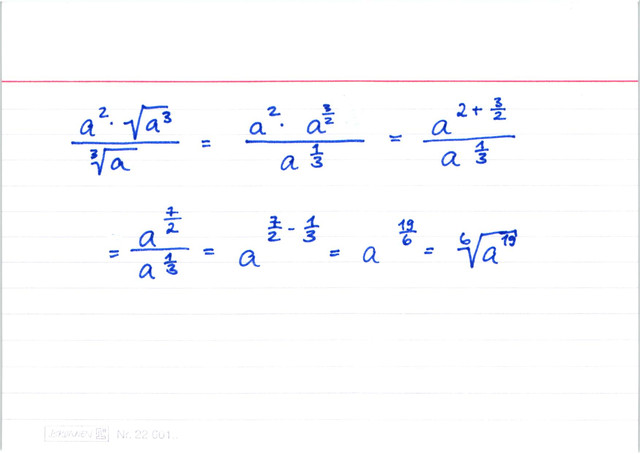 a² · √a³ / ³√a = a² · a^(3/2) / a^(1/3) = a^(2 + 3/2) / a^(1/3)
= a^(7/2) / a^(1/3) = a^(7/2 - 1/3) = a^(19/6) = ⁶√a¹⁹
Nr. 22 001